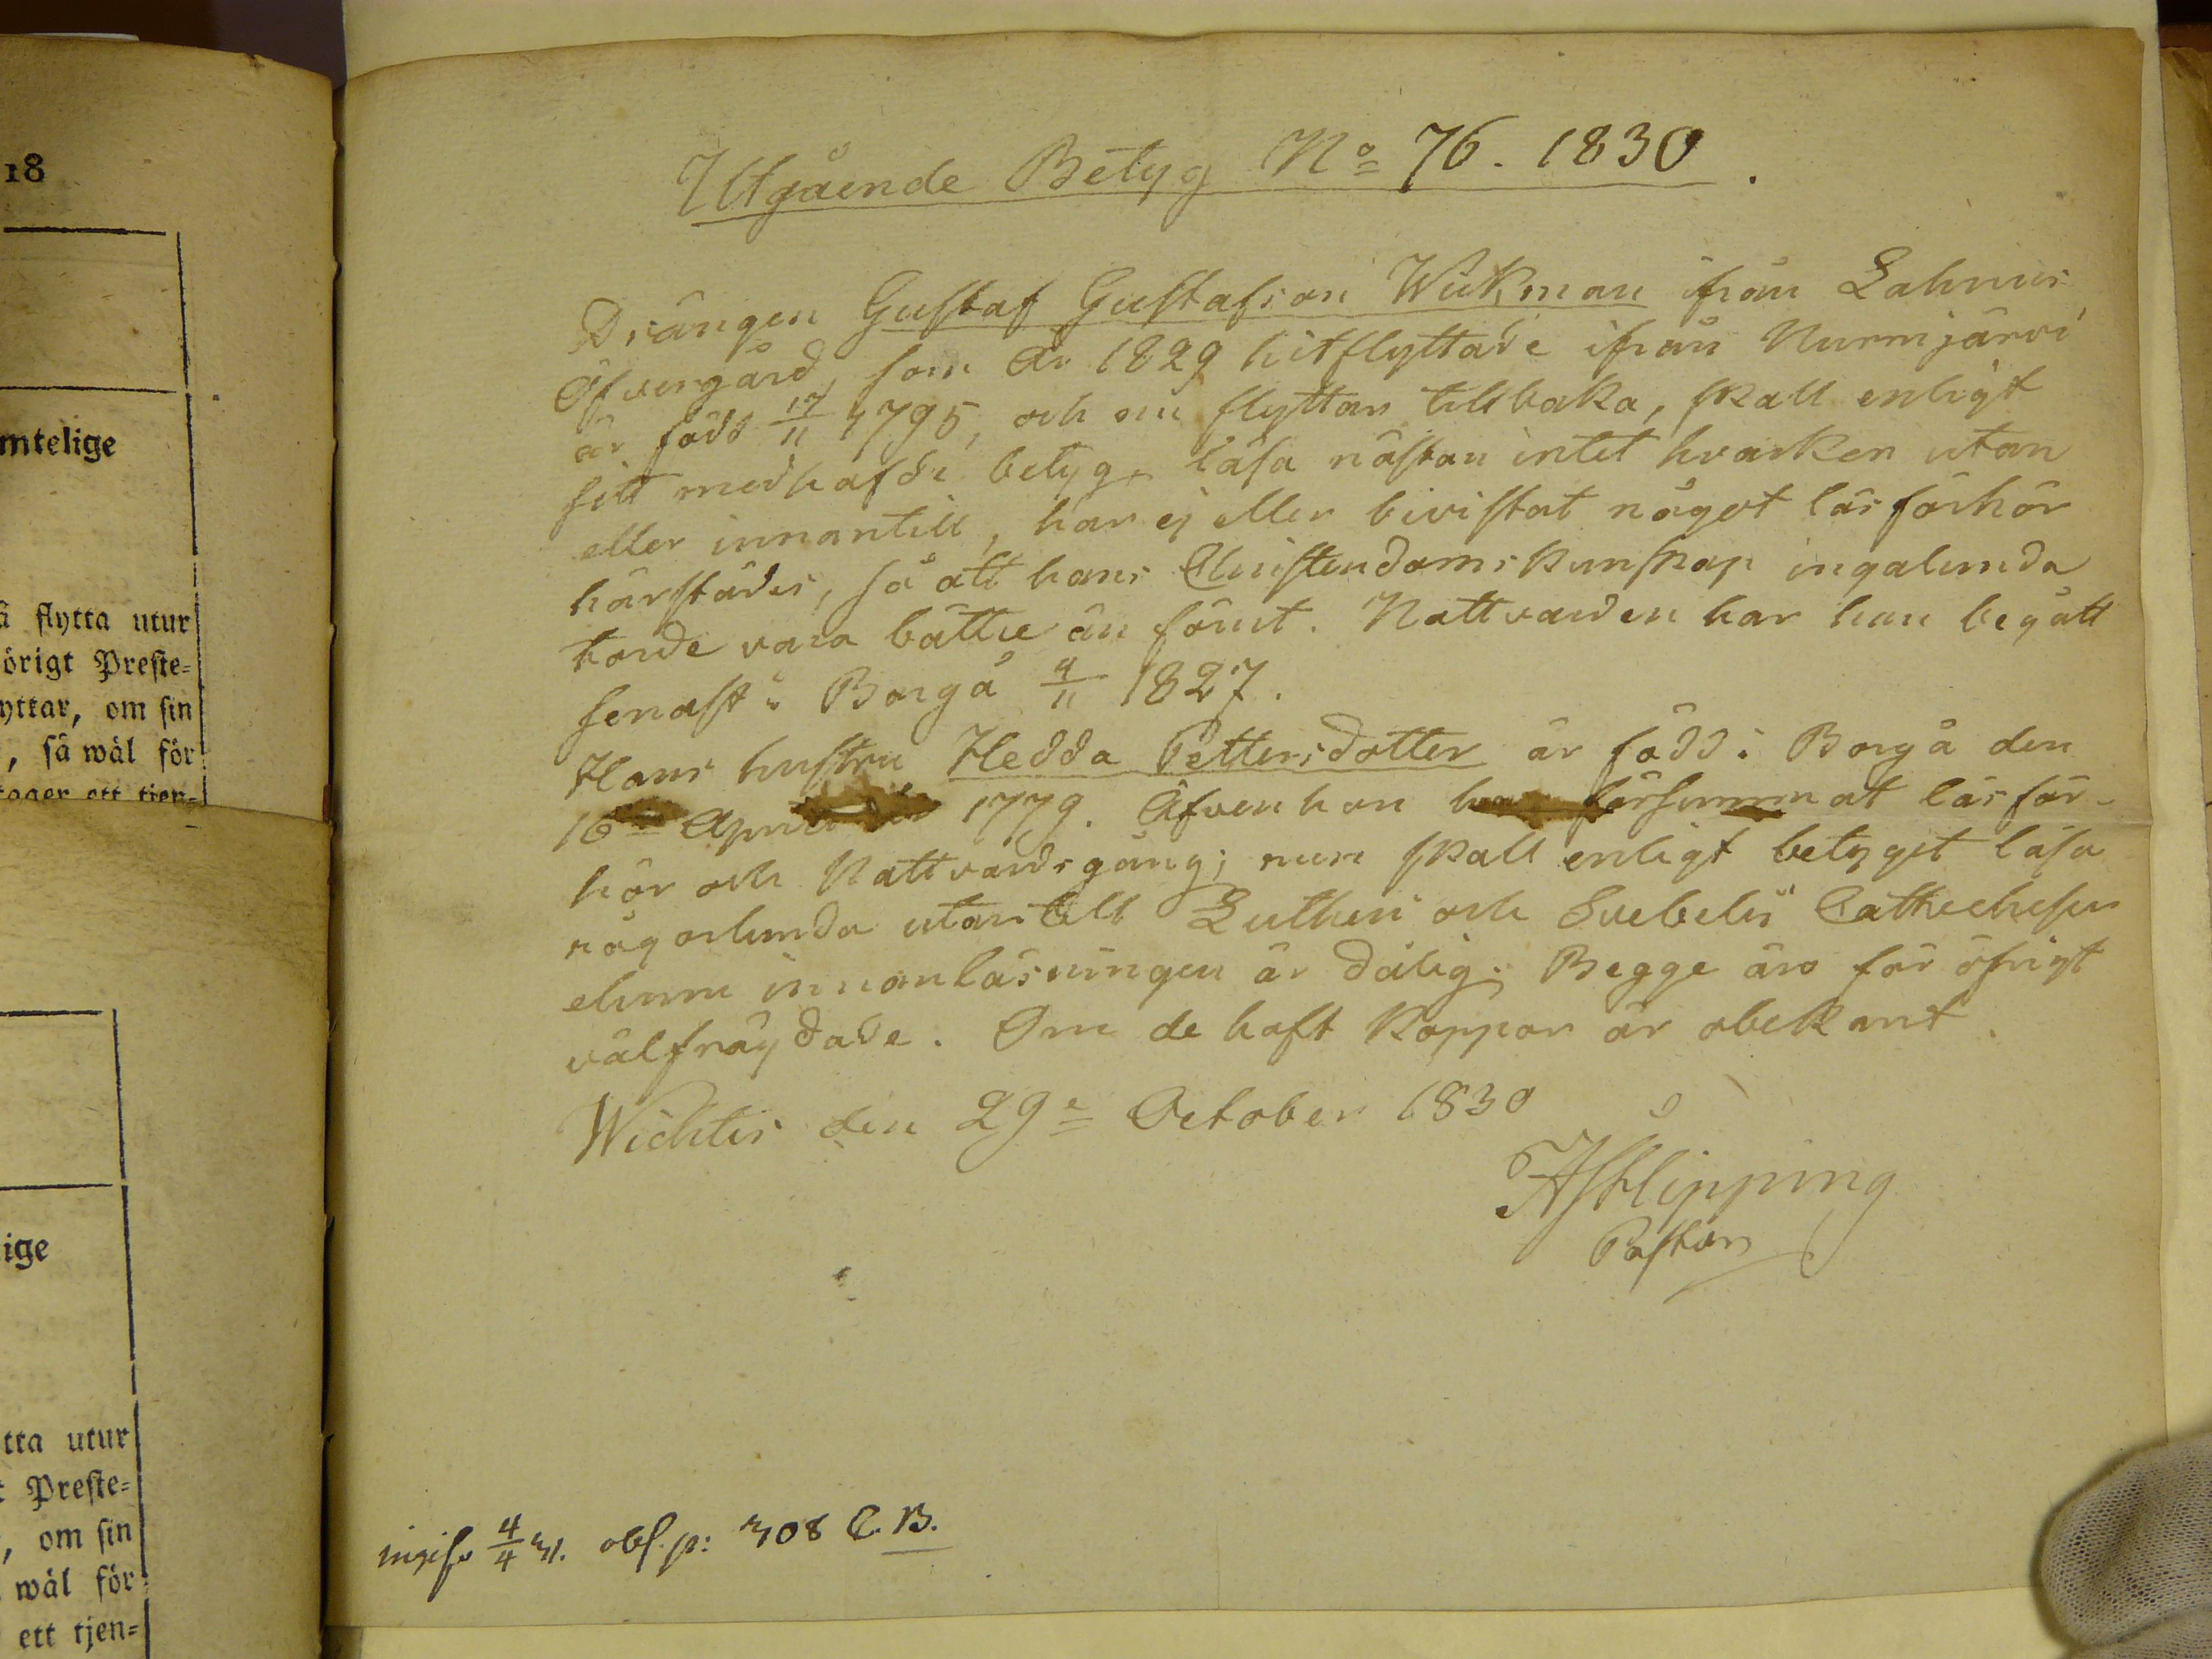 18
mtelige
å flytta utur
örigt Preſte-
yttar, om ſin
, ſå wäl för
tager ett tjen-
ige
tta utur
Preſte-
, om ſin
wäl för
ett tjen-
Utgående Betyg No 76. 1830.
Drängen Gustaf Gustafsson Wickman från Lahnus
Öfvergård, som År 1829 hitflyttade ifrån Nurmjärvi
är född 17/11 1795, och nu flyttar tillbaka, skall enligt
sitt medhafde betyg, läsa nästan intet hvarken utan
eller innantill, har ej eller bivistat något läsförhör
härstädes, så att hans Christendomskunskap ingalunda
torde vara bättre än förut. Nattvarden har han begått
senast i Borgå 4/11 1827.
Hans hustru Hedda Pettersdotter är född i Borgå den
16 April 1779. Äfven hon har försummat läsför-
hör och Nattvardsgång; men skall enligt betyget läsa
någorlunda utantill Lutheri och Svebelii Cathechesen
ehuru innanläsningen är dålig. Begge äro för öfrigt
välfräjdade. Om de haft Koppor är obekant.
Wichtis den 29e October 1830
Pastor
4/4 31. obs. p: 308 C.B.